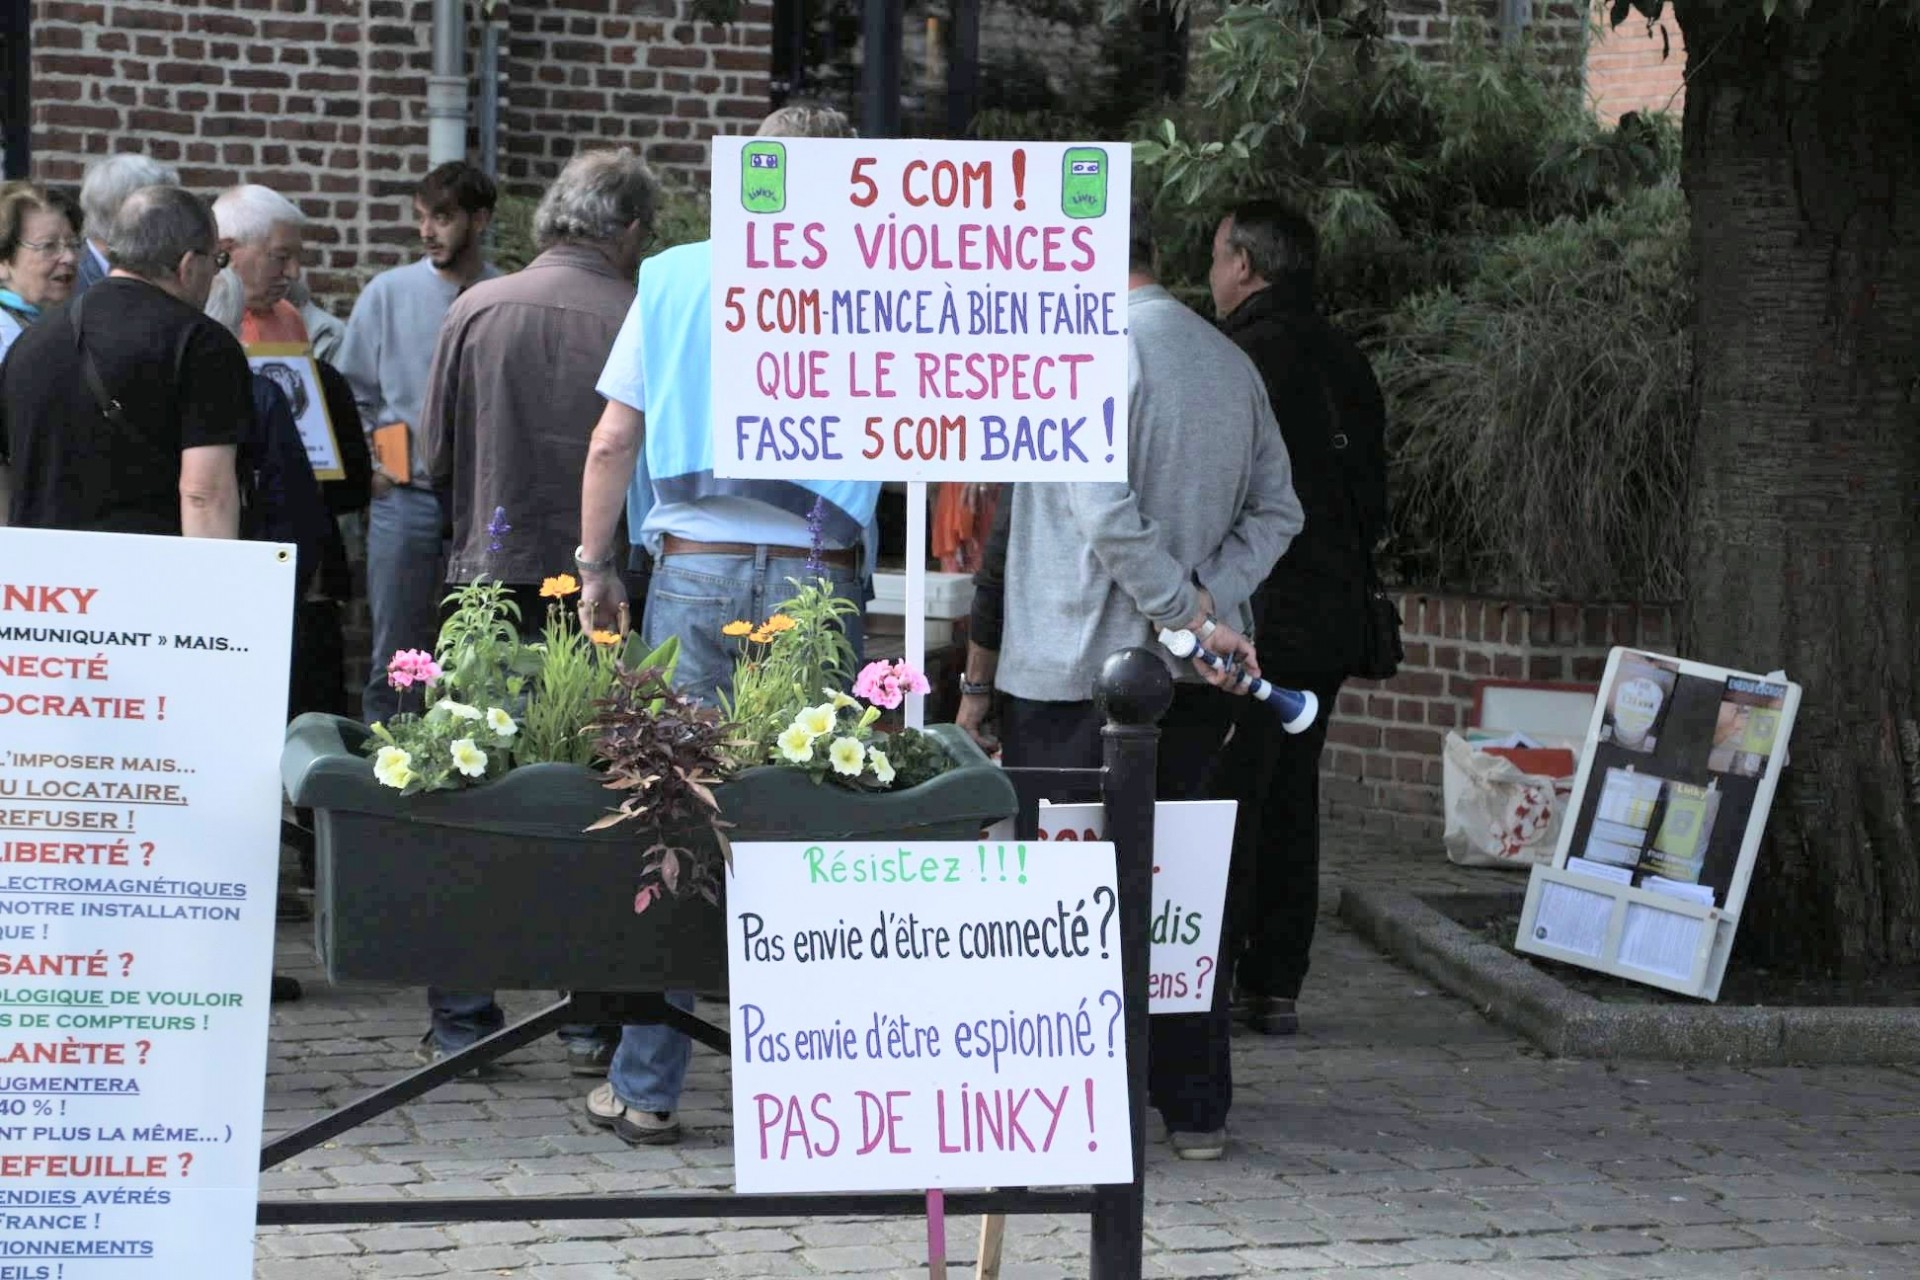 5 COM !
LES VIOLENCES
5 COM-MENCE À BIEN FAIRE.
QUE LE RESPECT
FASSE 5 COM BACK !
LINKY
LINKY
NKY
MMUNIQUANT » MAIS...
NECTÉ
OCRATIE !
L'IMPOSER MAIS...
U LOCATAIRE,
REFUSER !
LIBERTÉ ?
LECTROMAGNÉTIQUES
NOTRE INSTALLATION
QUE !
SANTÉ ?
OLOGIQUE DE VOULOIR
S DE COMPTEURS !
LANÈTE ?
UGMENTERA
40 % !
NT PLUS LA MÊME... )
EFEUILLE ?
ENDIES AVÉRÉS
FRANCE !
TIONNEMENTS
EILS !
Résistez !!!
Pas envie d'être connecté ?
Pas envie d'être espionné ?
PAS DE LINKY !
COM
dis
ens ?
Linky